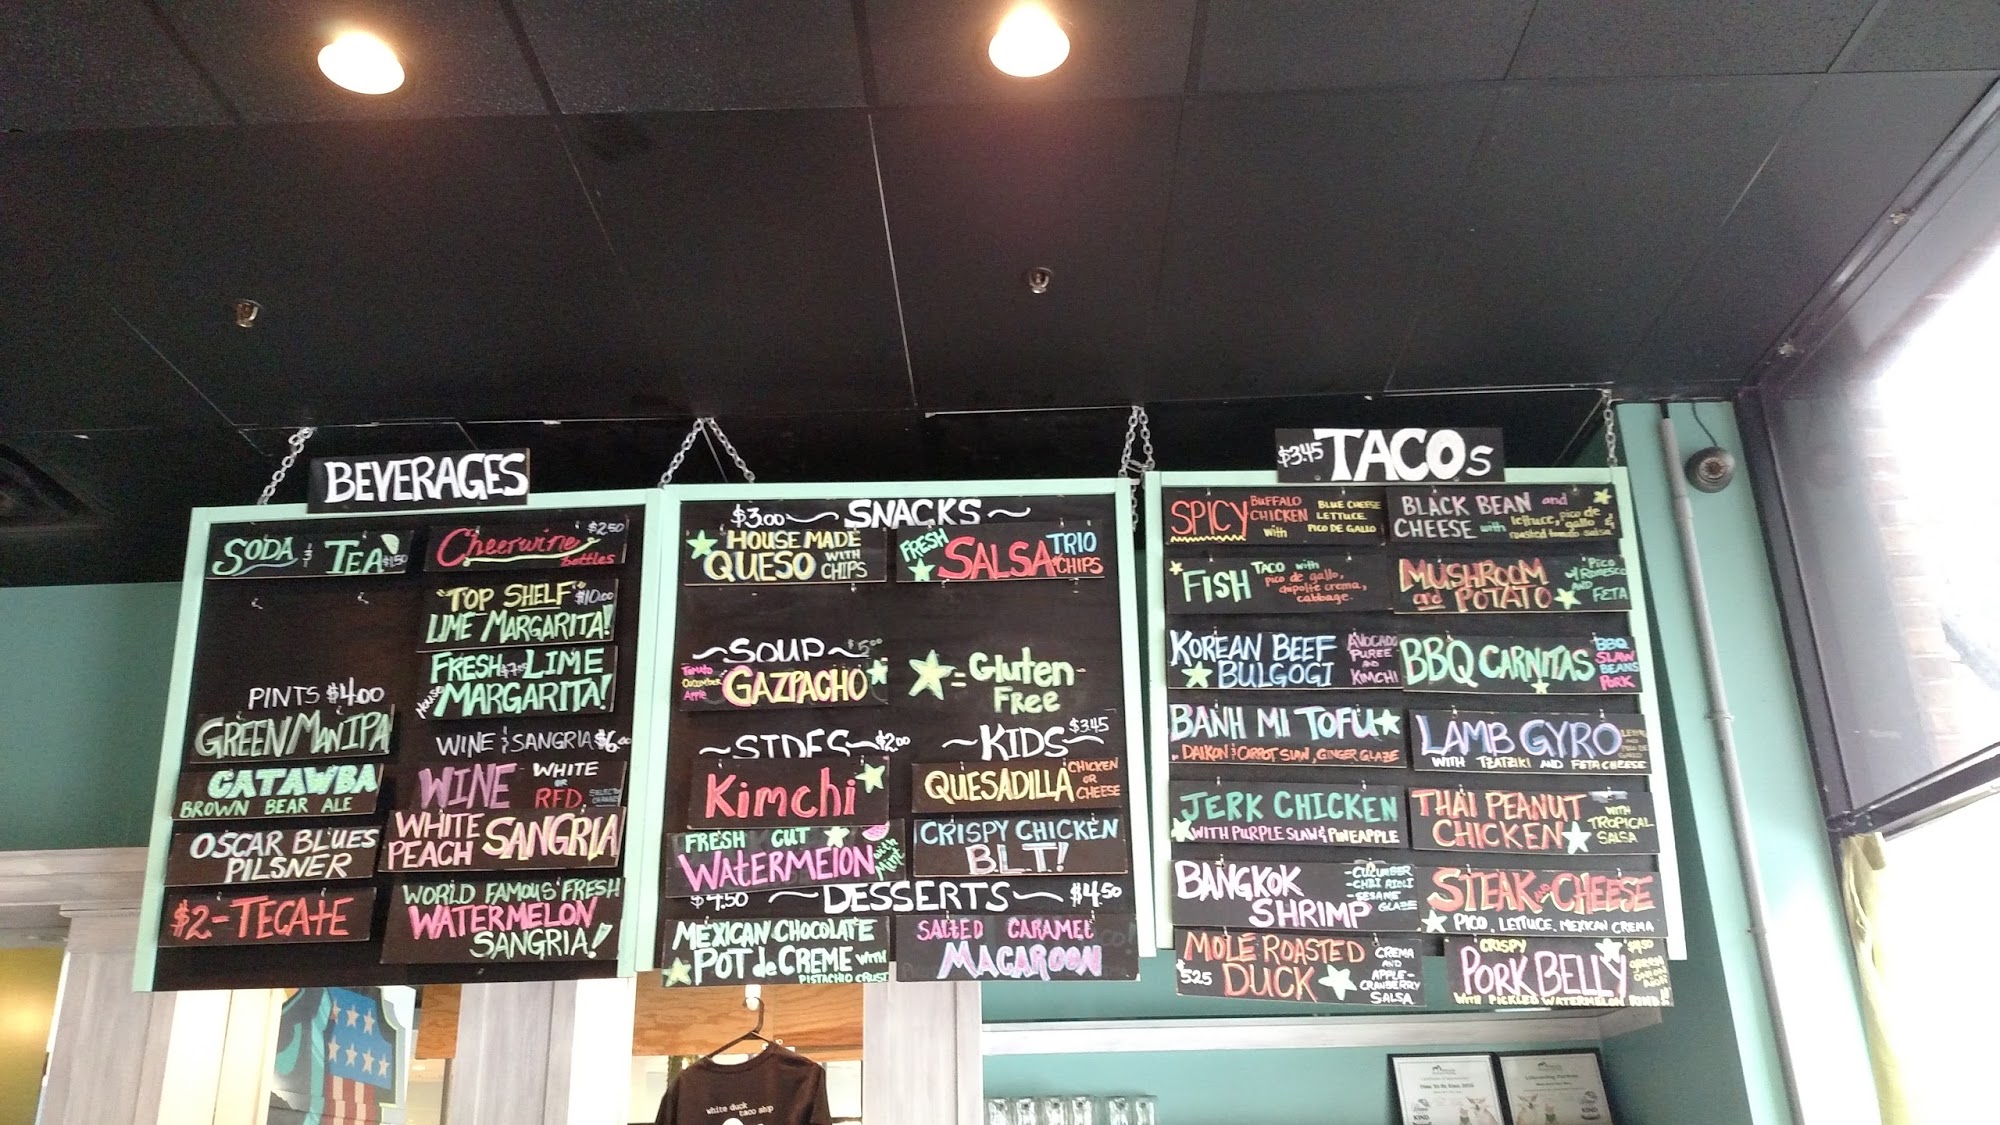 BEVERAGES
SODA & TEA $1.50
Cheerwine $2.50
bottles
"TOP SHELF" $10.00
LIME MARGARITA!
House
FRESH LIME
MARGARITA!
PINTS $4.00
GREEN MAN IPA
CATAWBA
BROWN BEAR ALE
OSCAR BLUES
PILSNER
$2-TECATE
WINE & SANGRIA $6.00
WINE WHITE
OR
RED
WHITE
PEACH SANGRIA
WORLD FAMOUS FRESH
WATERMELON
SANGRIA!
$3.00 SNACKS
HOUSE MADE
QUESO WITH
CHIPS
FRESH
SALSA TRIO
CHIPS
SOUP $5.00
Tomato
Cucumber
Apple
GAZPACHO
= Gluten-
Free
SIDES $2.00
Kimchi
FRESH CUT
WATERMELON with
Mint
KIDS $3.45
QUESADILLA CHICKEN
OR
CHEESE
CRISPY CHICKEN
B.L.T!
$4.50 DESSERTS $4.50
MEXICAN CHOCOLATE
POT de CREME WITH
PISTACHIO CRUST
SALTED CARAMEL
MACAROON
$3.45 TACOS
SPICY BUFFALO
CHICKEN
with
BLUE CHEESE
LETTUCE.
PICO DE GALLO
FISH TACO with
pico de gallo,
chipotle crema,
cabbage.
KOREAN BEEF
BULGOGI
AVOCADO
PUREE
AND
KIMCHI
BANH MI TOFU
DAIKON & CARROT SLAW, GINGER GLAZE
JERK CHICKEN
WITH PURPLE SLAW & PINEAPPLE
BANGKOK
SHRIMP
-CUCUMBER
-CHILI AIOLI
-SESAME
GLAZE
MOLE ROASTED
$5.25 DUCK
CREMA
AND
APPLE-
CRANBERRY
SALSA
BLACK BEAN and
CHEESE with lettuce, pico de
gallo &
roasted tomato salsa
MUSHROOM
and POTATO
Pico
w/ Romesco
AND
FETA
BBQ CARNITAS
BBQ
SLAW
BEANS
PORK
LAMB GYRO
WITH TZATZIKI AND FETA CHEESE
THAI PEANUT
CHICKEN
WITH
TROPICAL
SALSA
STEAK AND CHEESE
PICO, LETTUCE, MEXICAN CREMA
CRISPY
PORK BELLY
GREEN
ONION
WITH PICKLED WATERMELON RIND!!
white duck
taco shop
KIND
KIND